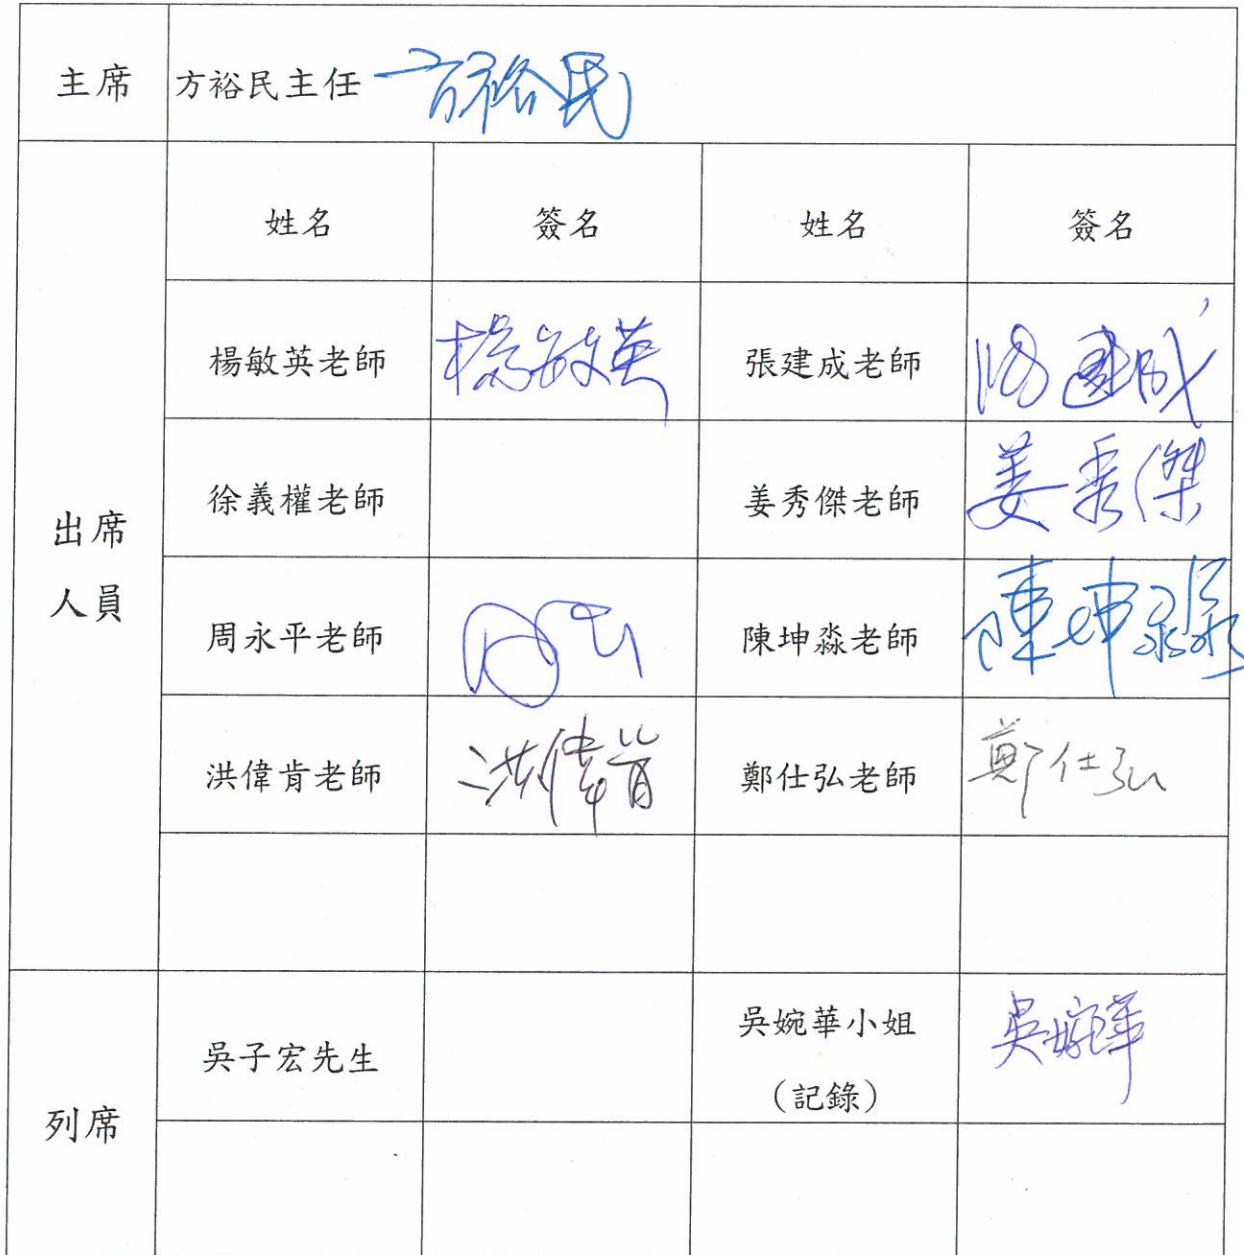 主席 方裕民主任 方裕民
出席人員
姓名 簽名 姓名 簽名
楊敏英老師 楊敏英 張建成老師 張建成
徐義權老師 姜秀傑老師 姜秀傑
周永平老師 陳坤淼老師 陳坤淼
洪偉肯老師 洪偉肯 鄭仕弘老師 鄭仕弘
列席
吳子宏先生 吳婉華小姐 吳婉華
（記錄）